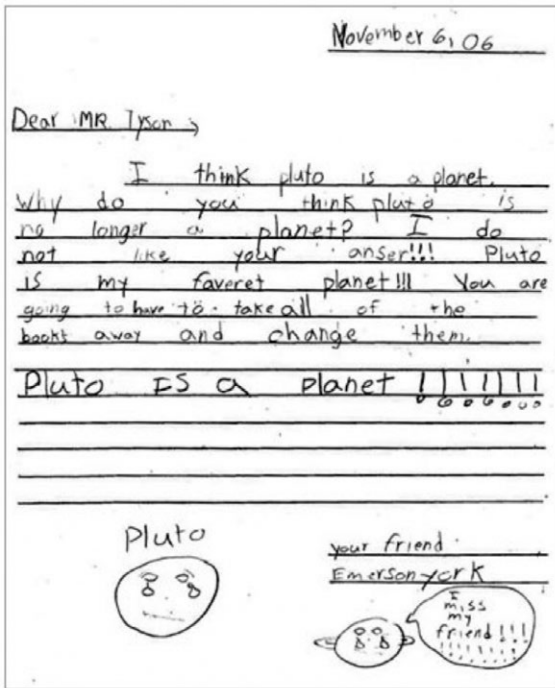 November 6, 06
Dear MR. Tyson,
I think pluto is a planet.
Why do you think pluto is
no longer a planet? I do
not like your anser!!! Pluto
is my faveret planet!!! You are
going to have to take all of the
books away and change them.
Pluto IS a planet !!!!!!!
Pluto
your friend
Emerson york
I
miss
my
friend !!!
!!!!!!